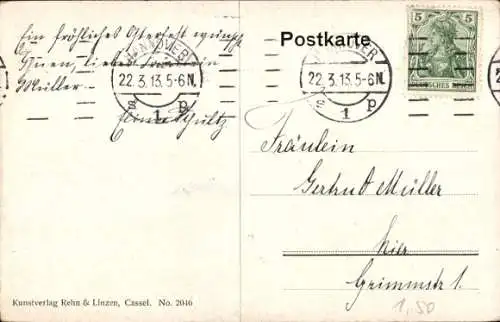 Ein fröhliches Osterfest wünscht
Ihnen, liebes Fräulein
Müller
Schultz
HANNOVER
22.3.13.5-6N.
s 1 p
Kunstverlag Rehn & Linzen, Cassel. No. 2046
Postkarte
HANNOVER
22.3.13.5-6N.
s 1 p
5 5
DEUTSCHES REICH
Fräulein
Gertrud Müller
hier
Grimmstr 1.
1,50